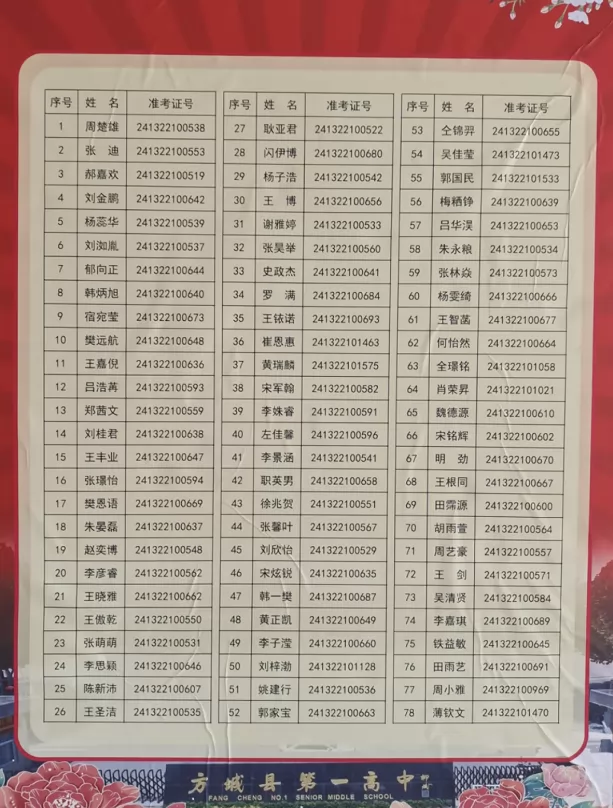 序号 姓 名 准考证号
1 周楚雄 241322100538
2 张 迪 241322100553
3 郝嘉欢 241322100519
4 刘金鹏 241322100642
5 杨蕊华 241322100539
6 刘洳胤 241322100537
7 郁向正 241322100644
8 韩炳旭 241322100640
9 宿宛莹 241322100673
10 樊远航 241322100648
11 王嘉倪 241322100636
12 吕浩苒 241322100593
13 郑茜文 241322100559
14 刘桂君 241322100638
15 王丰业 241322100647
16 张璟怡 241322100594
17 樊恩语 241322100669
18 朱晏磊 241322100637
19 赵奕博 241322100548
20 李彦睿 241322100562
21 王晓雅 241322100662
22 王傲乾 241322100550
23 张萌萌 241322100531
24 李思颖 241322100646
25 陈新沛 241322100607
26 王圣洁 241322100535
序号 姓 名 准考证号
27 耿亚君 241322100522
28 闪伊博 241322100680
29 杨子浩 241322100542
30 王 博 241322100656
31 谢雅婷 241322100533
32 张昊举 241322100560
33 史政杰 241322100641
34 罗 满 241322100684
35 王铱诺 241322100693
36 崔恩惠 241322101463
37 黄瑞麟 241322101575
38 宋军翰 241322100582
39 李姝睿 241322100591
40 左佳馨 241322100596
41 李景涵 241322100541
42 职英男 241322100658
43 徐兆贺 241322100551
44 张馨叶 241322100567
45 刘欣怡 241322100529
46 宋炫锐 241322100635
47 韩一樊 241322100687
48 黄正凯 241322100649
49 李子滢 241322100660
50 刘梓渤 241322101128
51 姚建行 241322100536
52 郭家宝 241322100663
序号 姓 名 准考证号
53 仝锦羿 241322100655
54 吴佳莹 241322101473
55 郭国民 241322101533
56 梅栖铮 241322100639
57 吕华淏 241322100653
58 朱永粮 241322100534
59 张林焱 241322100573
60 杨雯绮 241322100666
61 王智菡 241322100677
62 何怡然 241322100664
63 全璟铭 241322101058
64 肖荣昇 241322101021
65 魏德源 241322100610
66 宋铭辉 241322100602
67 明 劲 241322100670
68 王根同 241322100667
69 田霈源 241322100600
70 胡雨萱 241322100564
71 周艺豪 241322100557
72 王 剑 241322100571
73 吴清贤 241322100584
74 李嘉琪 241322100689
75 铁益敏 241322100645
76 田雨艺 241322100691
77 周小雅 241322100969
78 薄钦文 241322101470
方城县第一高中
FANG CHENG NO.1 SENIOR MIDDLE SCHOOL